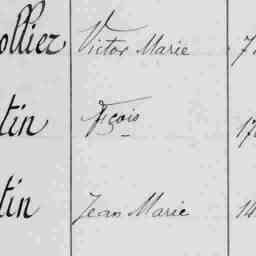 ollier Victor Marie 7
tin Fçois 17
tin Jean Marie 14